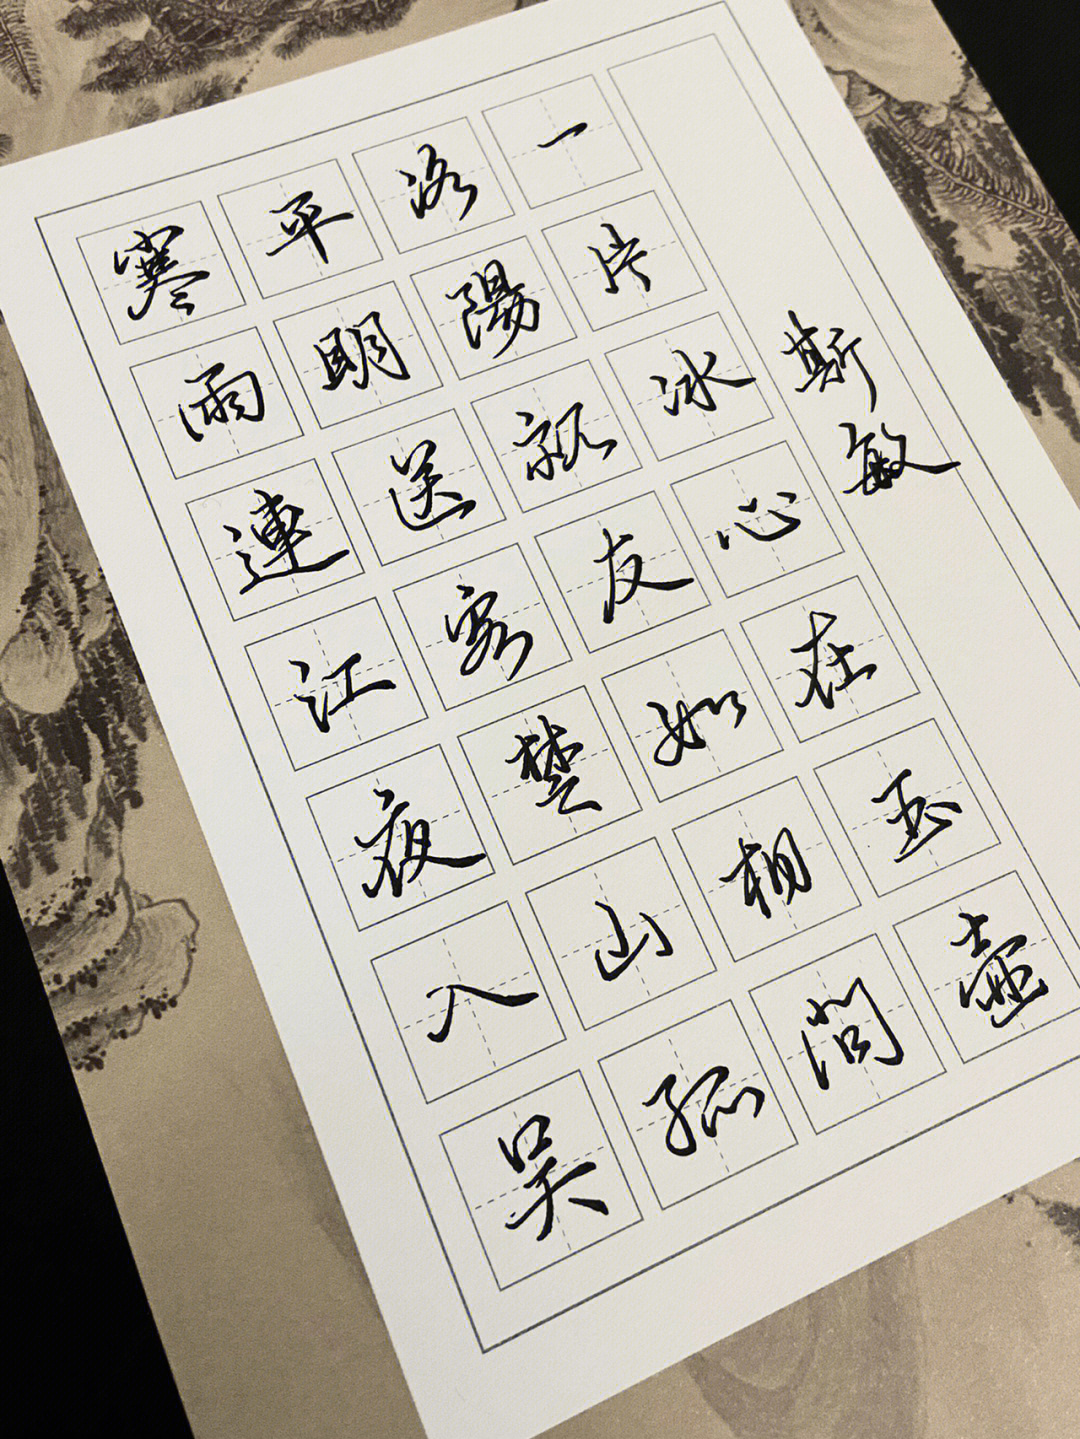 寒雨連江夜入吴
平明送客楚山孤
洛陽親友如相問
一片冰心在玉壺
斯敏